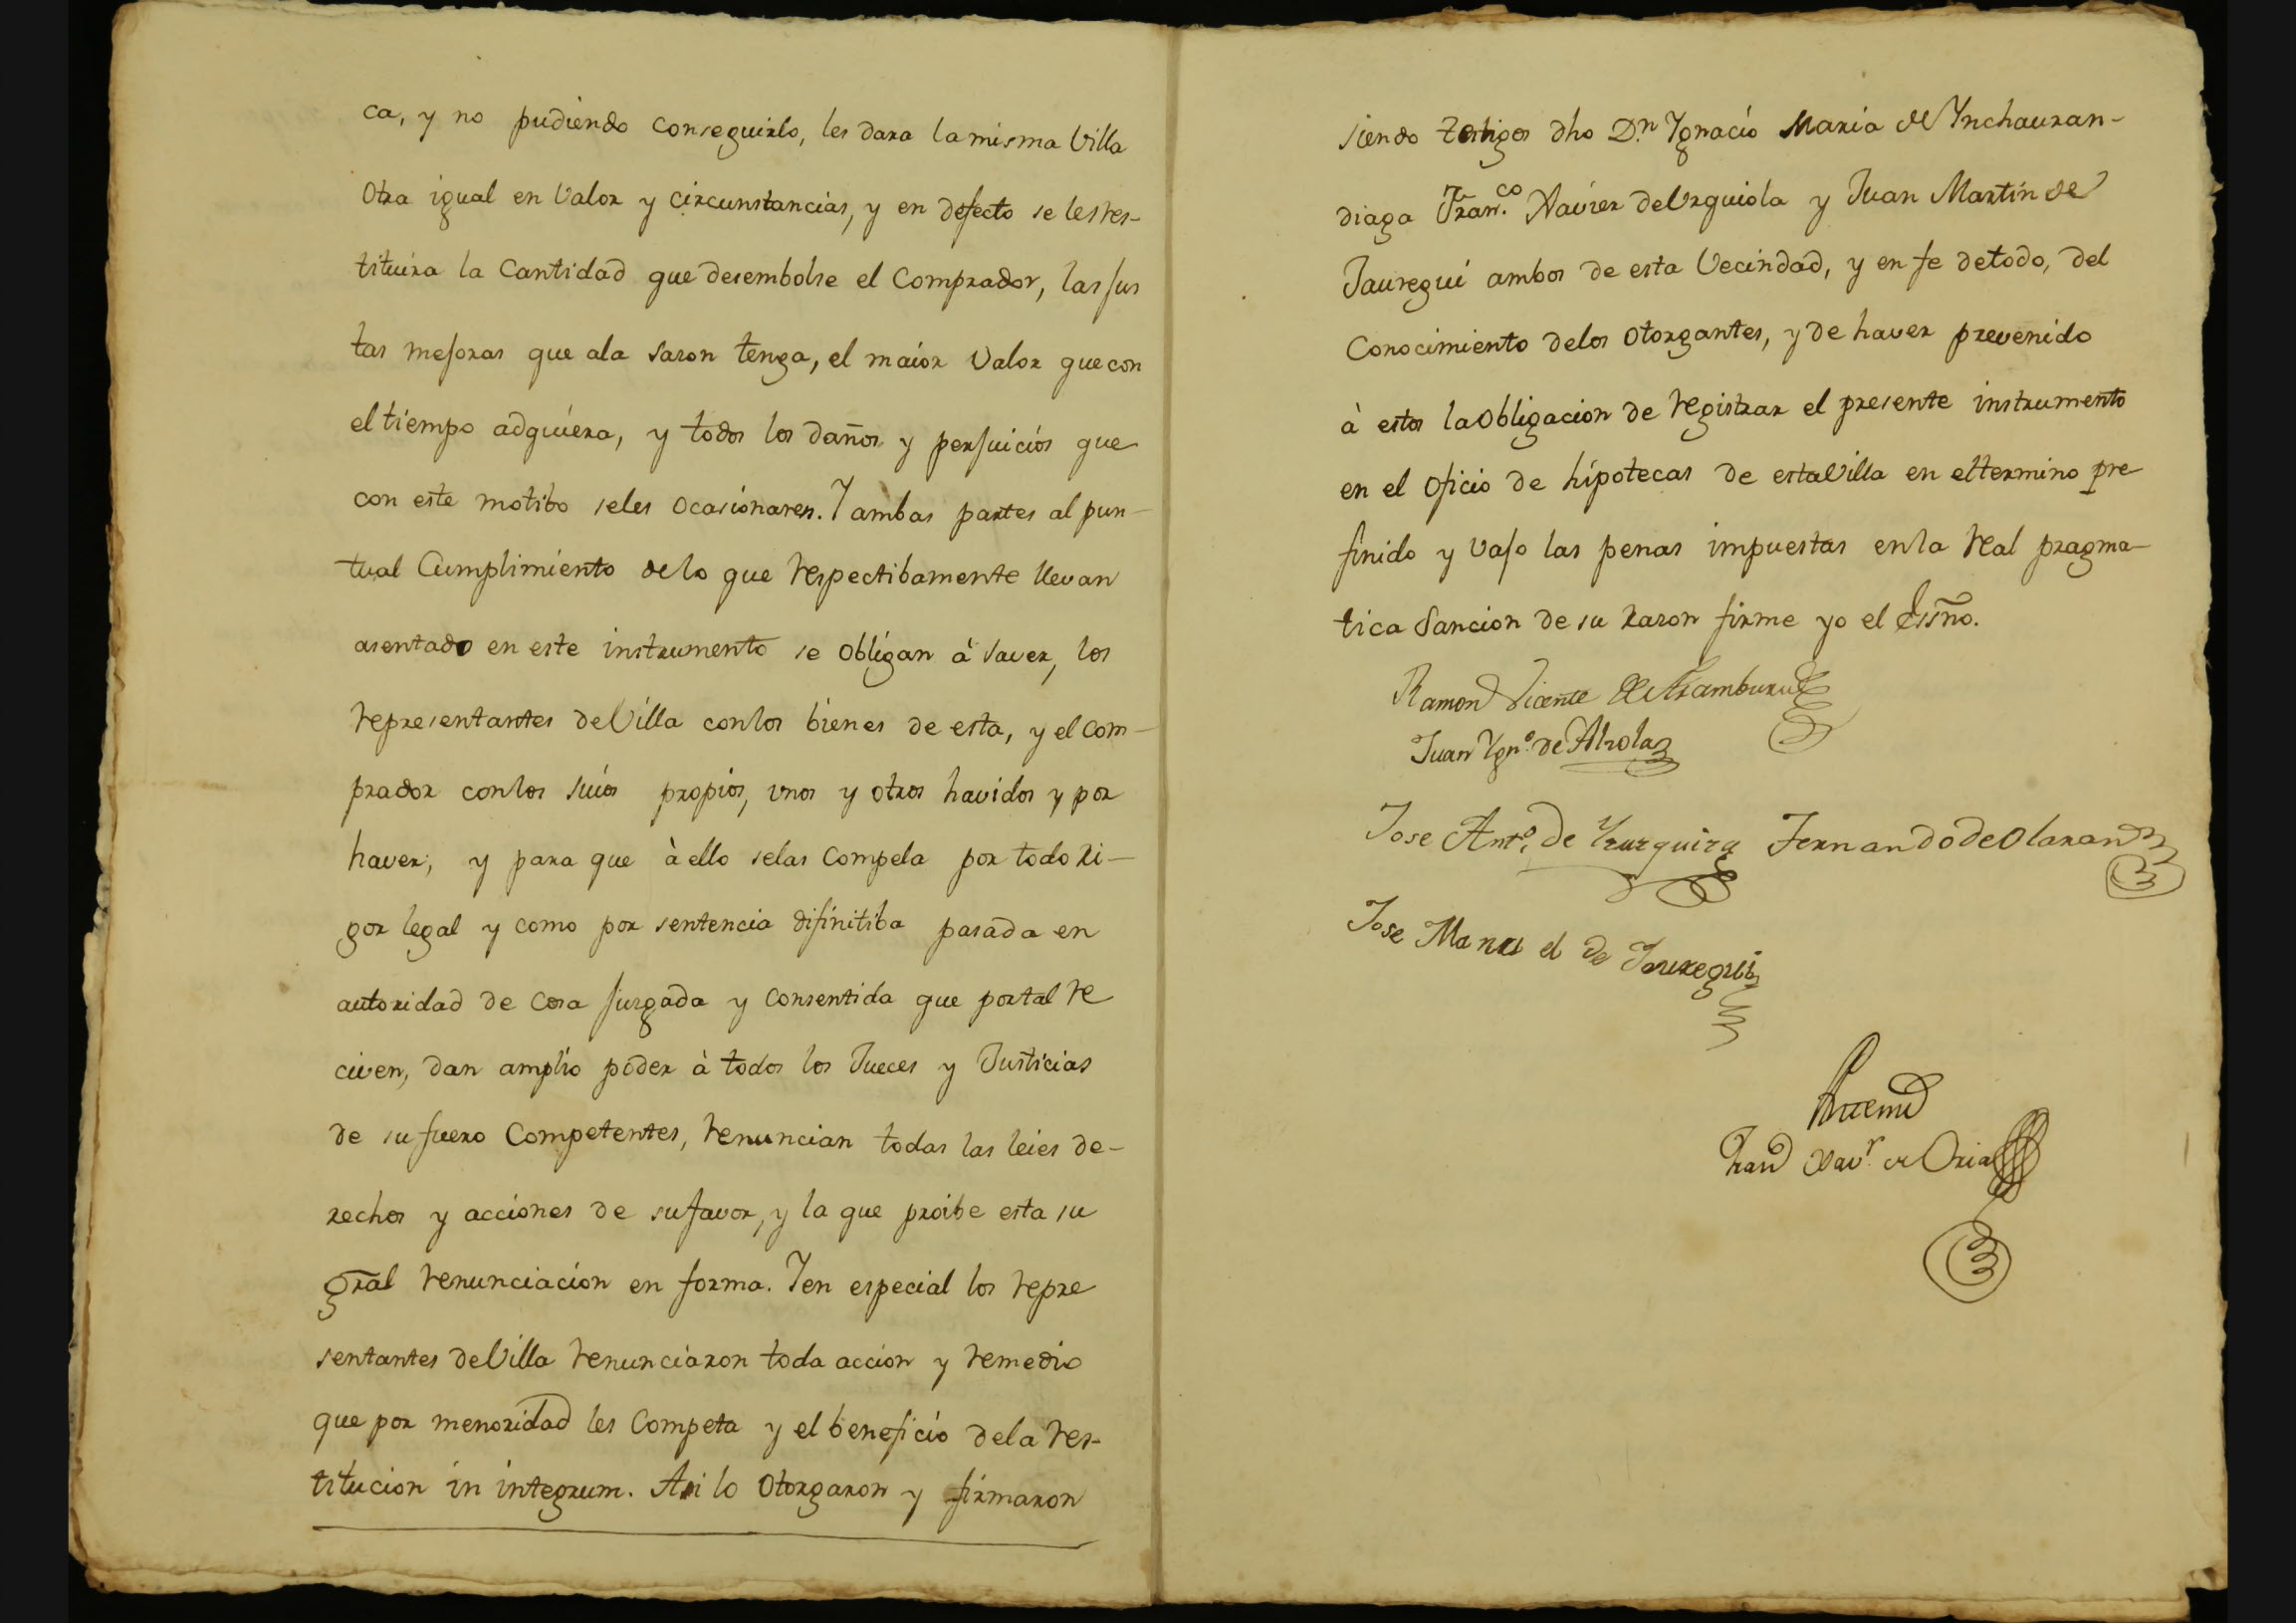 ca, y no pudiendo conseguirlo, les dara la misma Villa
otra igual en valor y circunstancias, y en defecto se les res-
tituira la Cantidad que desembolse el Comprador, las jus
tas mejoras que ala sason tenga, el maior valor que con
el tiempo adquiera, y todos los daños y perjuicios que
con este motibo seles ocasionaren. Y ambas partes al pun-
tual Cumplimiento de lo que respectibamente llevan
asentado en este instrumento se obligan à saver, los
representantes de Villa con los bienes de esta, y el com-
prador con los suios propios, vnos y otros havidos y por
haver; y para que à ello selas compela por todo ri-
gor legal y como por sentencia difinitiba pasada en
autoridad de cosa jusgada y consentida que por tal re
civen, dan amplio poder à todos los Jueces y Justicias
de su fuero Competentes, renuncian todas las leies de-
rechos y acciones de su favor, y la que proibe esta su
gral renunciacion en forma. Y en especial los repre
sentantes de Villa renunciaron toda accion y remedio
que por menoridad les Competa y el beneficio dela res-
titucion in integrum. Asi lo otorgaron y firmaron
siendo testigos dho Dn. Ygnacio Maria de Ynchauran-
diaga Fran.co Xavier de Urquiola y Juan Martin de
Jauregui ambos de esta Vecindad, y en fe de todo, del
Conocimiento delos otorgantes, y de haver prevenido
à estos la obligacion de registrar el presente instrumento
en el oficio de hipotecas de esta Villa en el termino pre
finido y vajo las penas impuestas en la real pragma-
tica Sancion de su rason firme yo el Essño.
Ramon Vicente de Aramburu
Juan Ygn.o de Alzola
Jose Ant.o de Fernando de Olaran
Jose Manuel de Jauregui
Antemi
Fran.co Xav.r de Oria